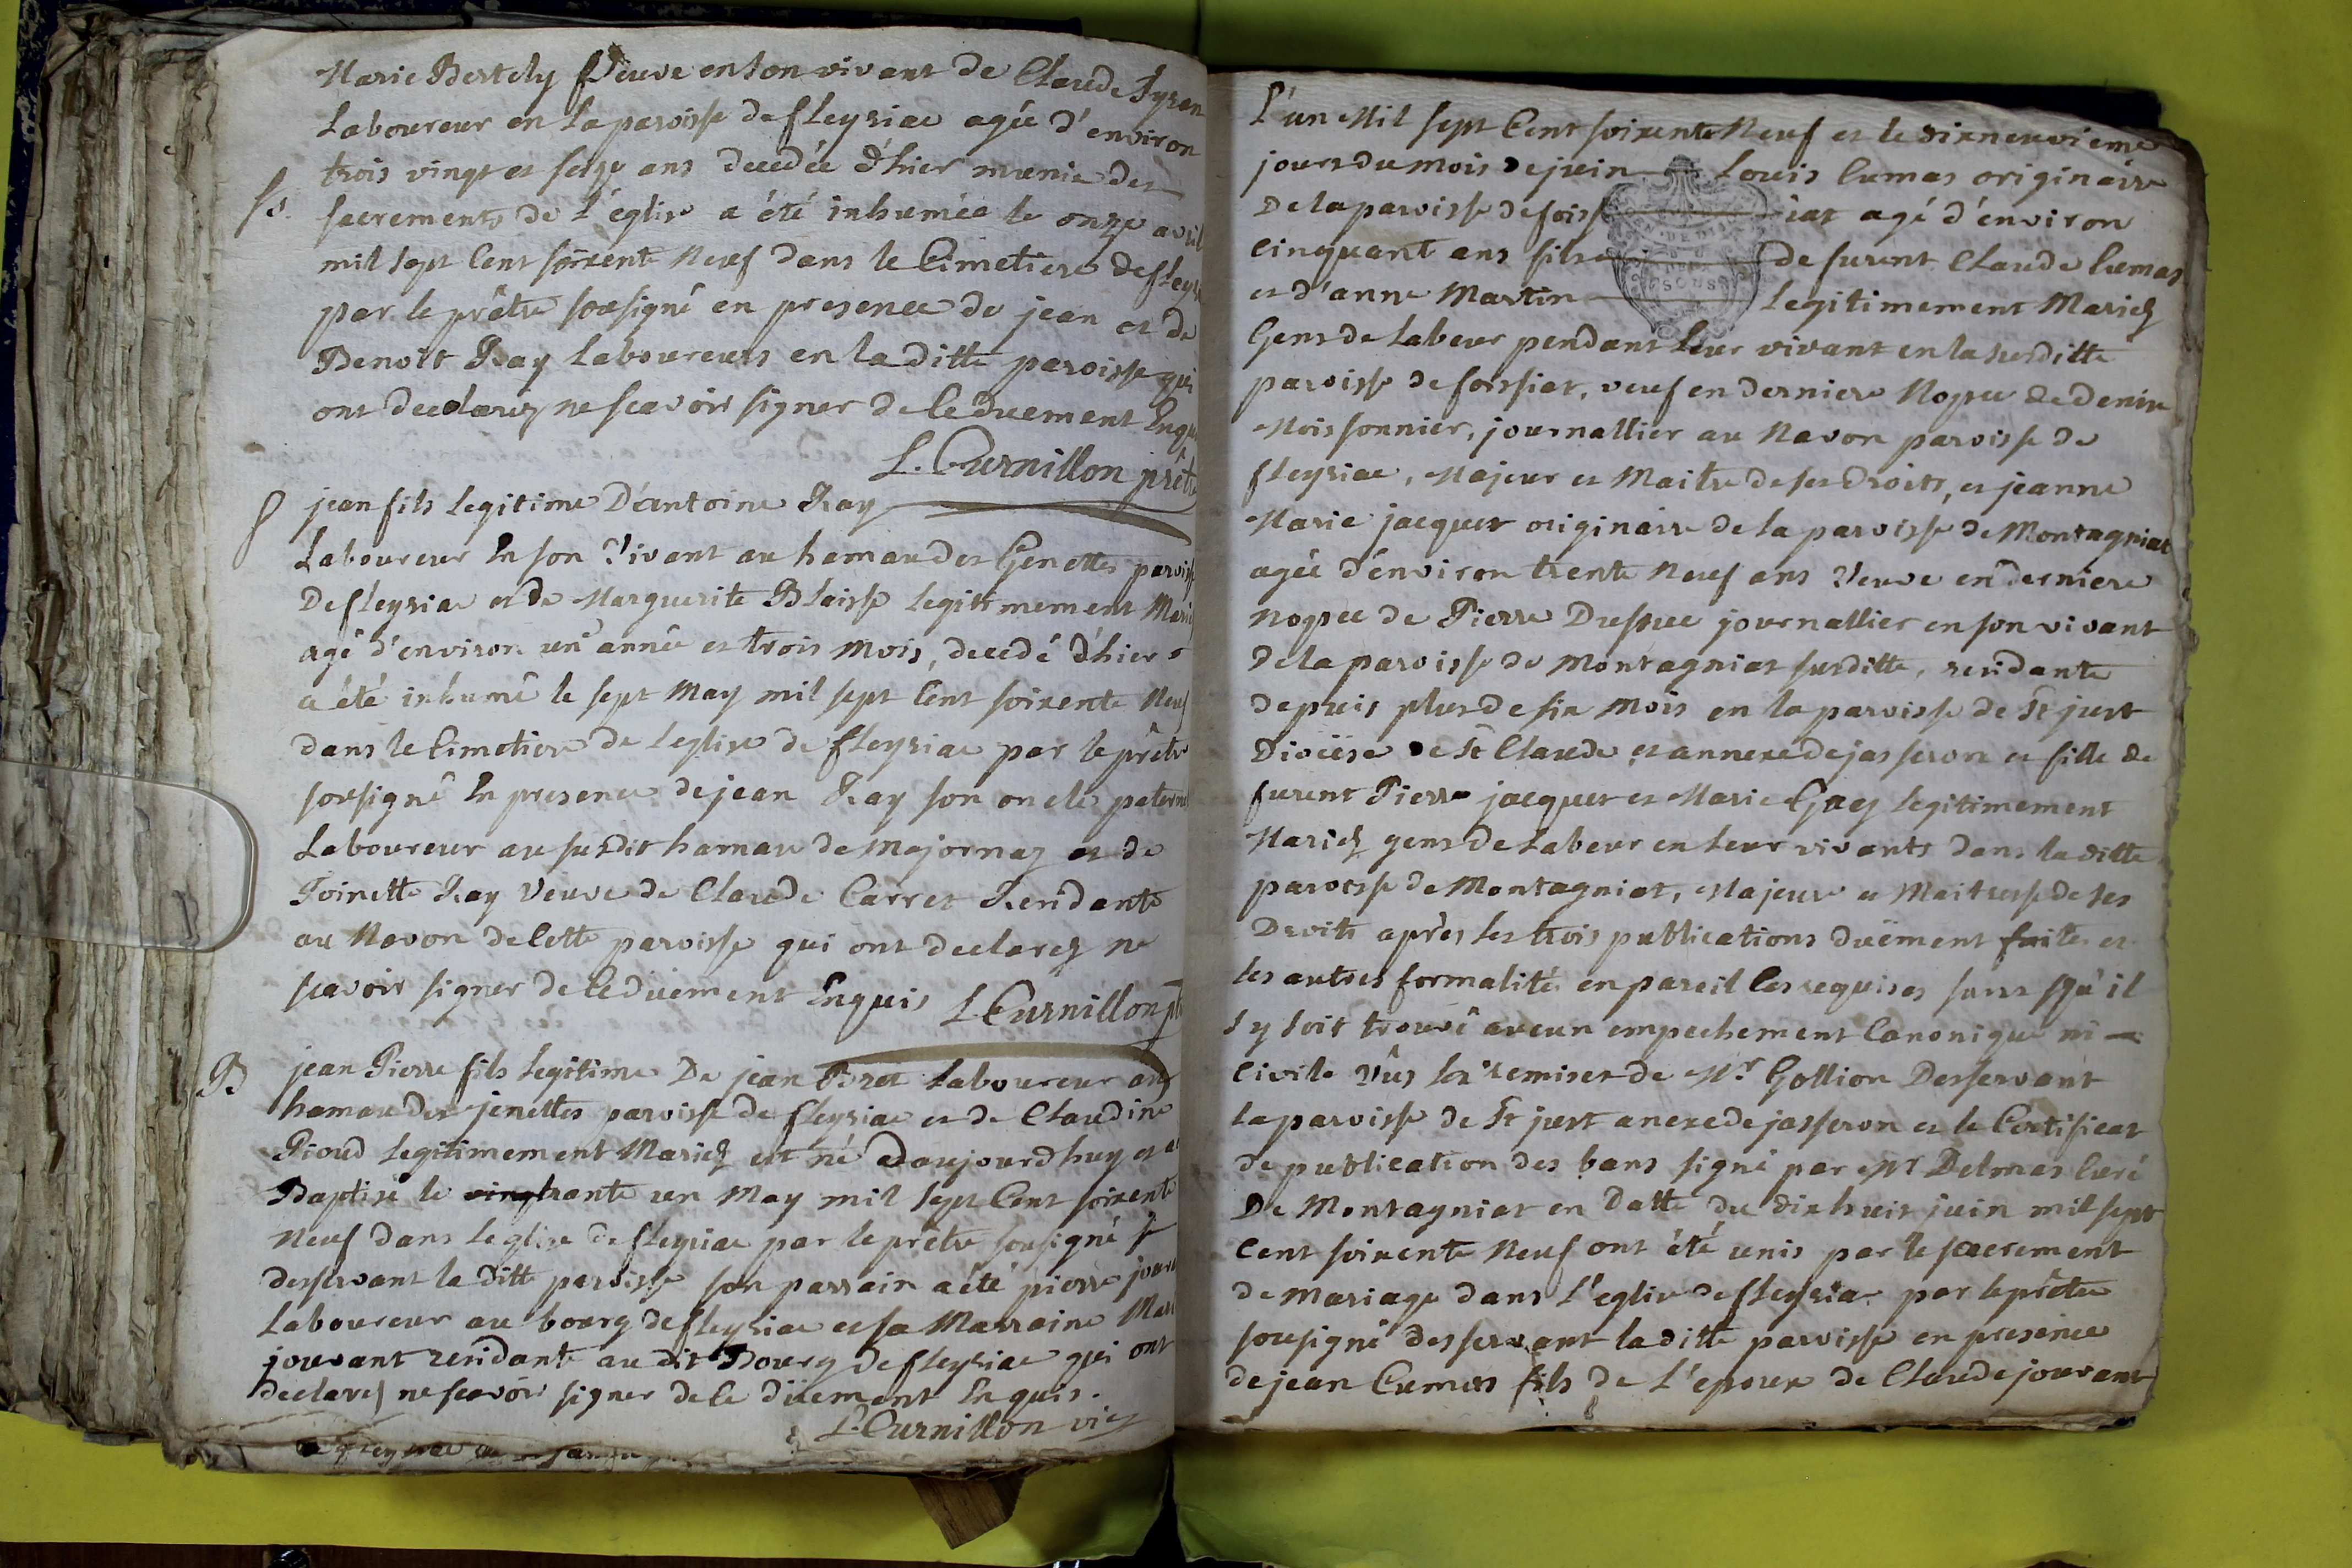 Marie Bertely Veuve en son vivant de Claude Tyran
Laboureur en la paroisse de fleyriac agée d'environ
trois vingt et seize ans decedée d'hier munie des
fs. sacrements de l'église a été inhumée le onze avril
mil sept Cent soixente Neuf dans le Cimetiere de fleyr
par le prêtre sousigné en presence de jean et de
Benoit Ray Laboureurs en la ditte paroisse qui
ont declarez ne scavoir signer de ce duement Enqu
L. Curnillon prêtre
jean fils legitime D'antoine Ray
Laboureur En son Vivant au hamau des Genettes paroiss
De fleyriac et de Marguerite Blaisse legitimement Mariez
agé d'environ un année et trois mois, decedé d'hier
a été inhumé le sept May mil sept Cent soixente Neuf
dans le Cimetiere de L'eglise de fleyriac par le prêtre
sousigné En presence de jean Ray son oncle paternel
Laboureur au susdit hamau de Majornaz et de
Toinette Ray Veuve de Claude Carret Residante
au Navon de Cette paroisse qui ont declarez ne
scavoir signer de ce duement Enquis L Curnillon
B jean Pierre fils legitime De jean Laboureur au
hamau des jenettes paroisse de fleyriac et de Claudine
Pioud legitimement Mariez est né aujourdhuy et a
Baptisé le trante un May mil sept Cent soixente
Neuf dans l'eglise de fleyriac par le prêtre sousigné
desservant la ditte paroisse son parrain a été pierre jouv
Laboureur au bourg de fleyriac et sa Marraine Mari
jouvant residante au dit Bourg de fleyriac qui ont
declarez ne scavoir signer de ce duement Enquis.
L. Curnillon vic
L'an Mil sept Cent soixente Neuf et le dixneuvieme
jours du mois de juin Louis Cumas originaire
De la paroisse de foissiat agé d'environ
Cinquant ans fils de furent Claude Cumas
et d'anne Martin Legitimement Mariez
Gens de Labeur pendant leur vivant en la susditte
paroisse de foissiat, veuf en derniere Nopce de Denise
Moissonnier, journallier au Navon paroisse de
fleyriac, Majeur et Maitre de ses droits, et jeanne
Marie jacquet originaire de la paroisse de Montagniat
agée d'environ trente Neuf ans Veuve en derniere
Nopce de Pierre Dupuee journallier en son vivant
de la paroisse de Montagniat susditte, residante
depuis plus de six mois en la paroisse de St just
Diocèse de St Claude et annexe de jasseron et fille de
furent Pierre jacquet et Marie Grey legitimement
Mariez gens de Labeur en leur vivants dans la ditte
paroisse de Montagniat, Majeure et Maitresse de ses
Droits après les trois publications duëment faites et
les autres formalités en pareil Cas requises sans qu'il
s'y soit trouvé aucun empechement Canonique ni
Civile Vûs les remises de Mr Gollion Desservant
la paroisse de St just anexe de jasseron et le Certificat
de publication des bans signé par Mr Delmas Curé
De Montagniat en datte du dix huit juin mil sept
Cent soixente Neuf ont été unis par le sacrement
de Mariage dans l'eglise de fleyriac par le prêtre
sousigné desservant la ditte paroisse en presence
de jean Cumas fils de l'epoux de Claude jouvant